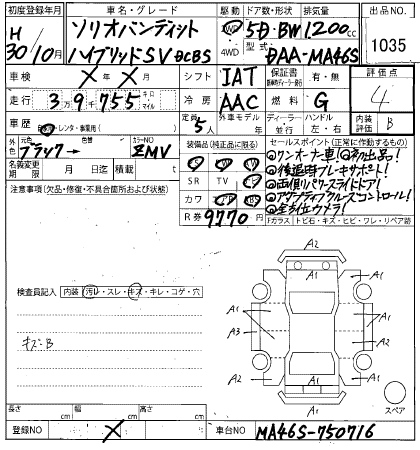 初度登録年月 車名・グレード 駆動 ドア数・形状 排気量 出品NO.
H 30/10月 ソリオバンディット 2WD 5D・BW 1200cc 1035
ハイブリッドSV DCBS 4WD 型式 DAA-MA46S
車検 X年X月 シフト IAT 保証書 有・無 評価点
走行 39755 キロ マイル 冷房 AAC 燃料 G 4
車歴 自家用・レンタ・事業用( ) 定員 5人 外車モデル 年 ディーラー 並行 ハンドル 左・右 内装評価 B
外色 元色 ブラック 色替 カラーNO ZMV 装備品(純正品に限る) セールスポイント(正常に作動するもの)
名義変更期限 月 日迄 積載 t
◎ワンオーナー車!◎初出品!
◎後退時ブレーキサポート!
SR TV
◎両側パワースライドドア!
注意事項(欠品・修復・不具合箇所および状態)
カワ
◎アダプティブクルーズコントロール!
R券 9770円
◎全方位カメラ!
Fガラス トビ石・キズ・ヒビ・ワレ・リペア跡
A2
A1
検査員記入 内装 汚レ・スレ・キズ・キレ・コゲ・穴
A1 A1 A1
キズ・B
A3 A1 A1
A1 A2
A2 A1 スペア
A2
長さ cm 幅 cm 高さ cm
登録NO X 車台NO MA46S-750716